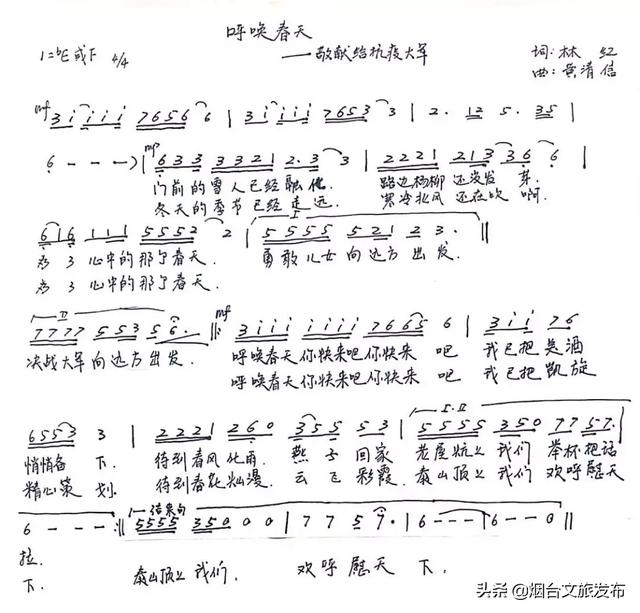 呼唤春天
1=ᵇE或F 4/4
——敬献给抗疫大军
词:林 红
曲:黄清信
mf 3 i i i i 7 6 5 6 6 | 3 i i i i 7 6 5 3 3 | 2. 1 2 5. 3 5 |
6 - - - ) | mp 6 3 3 3 3 2 1 2. 3 3 | 2 2 2 1 2 1 3 3 6 6 |
门前的雪人已经融化. 路边杨柳还没发芽.
冬天的季节已经走远. 寒冷北风还在吹啊.
I
6 | 6 1 1 1 5 5 5 2 2 | 5 5 5 5 5 2 1 2 3. ‖
为了心中的那个春天. 勇敢儿女向远方出发.
为了心中的那个春天.
II
7 7 7 7 5 5 3 5 6. ‖: mf 3 i i i i i i i 7 6 6 5 6 | 3 i i 7 6
决战大军向远方出发. 呼唤春天你快来吧你快来吧 我已把美酒
呼唤春天你快来吧你快来吧 我已把凯旋
I.II
6 5 5 3 3 | 2 2 2 1 2 6 0 3 5 5 5 3 | 5 5 5 5 3 5 0 7 7 5 7. |
悄悄备下. 待到春风化雨. 燕子回家 老屋炕上我们举杯把话
精心策划. 待到春花灿漫. 云飞彩霞. 泰山顶上我们欢呼慰天
结束句
6 - - - :‖ 5 5 5 5 3 5 0 0 0 | 7 7 5 7. | 6 - - - | 6 - - 0 ‖
拉.
下. 泰山顶上我们. 欢呼慰天下.
头条 @烟台文旅发布